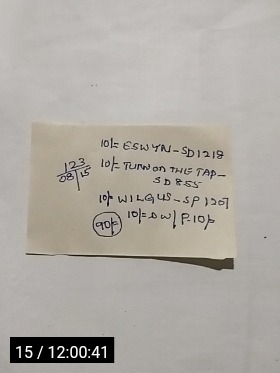 10/= ESWYN-SD1218
123
08/15
10/= TURN ON THE TAP-
SD855
10/= WILGUS-SP1207
10/= DW/P.10/=
90/=
15 / 12:00:41